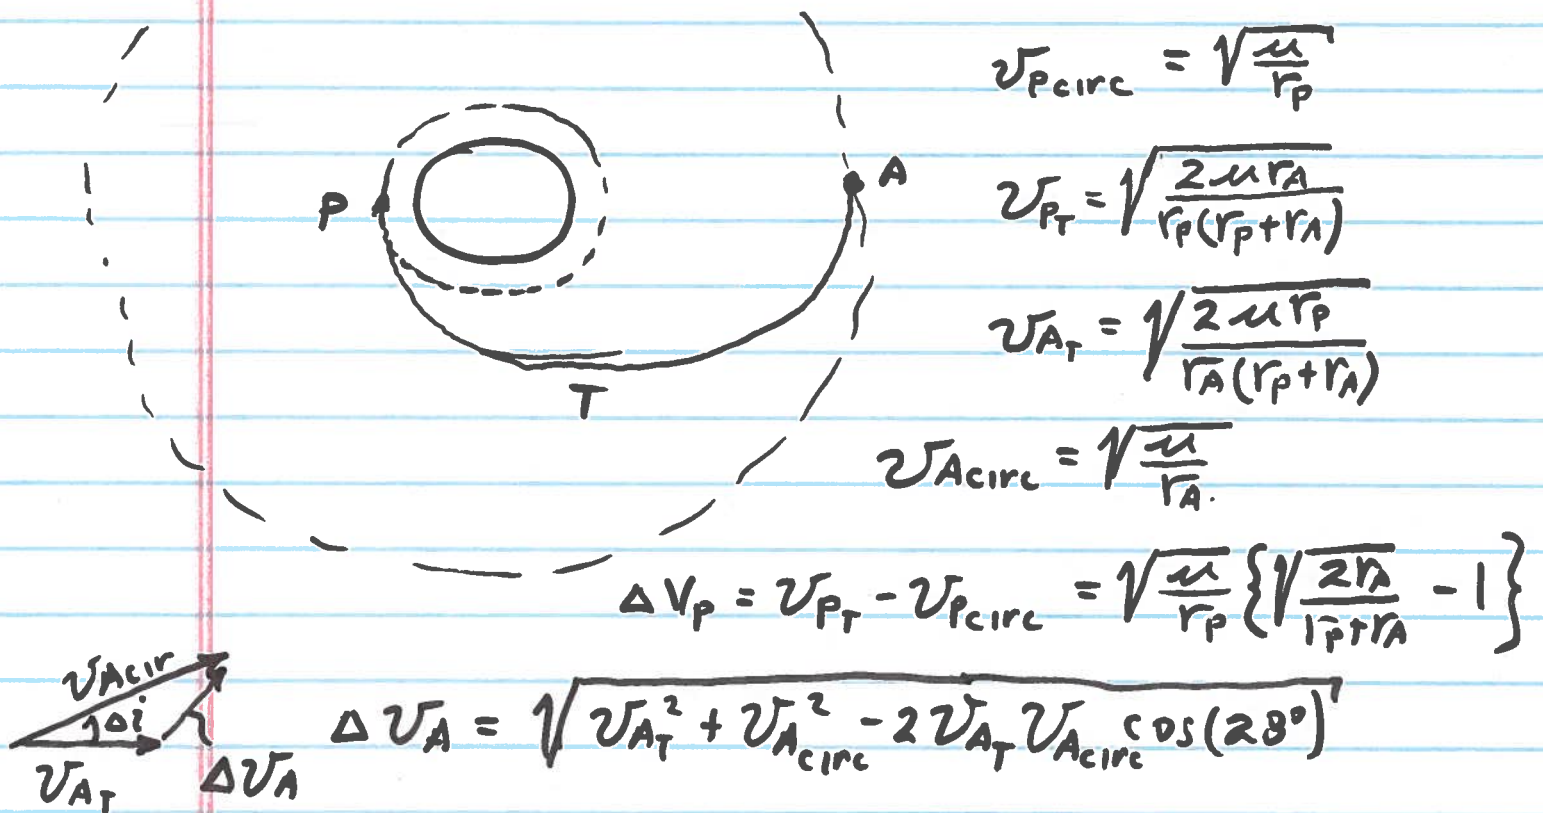 v_Pcirc = √(μ/r_P)
P
A
v_P_T = √(2μr_A / r_P(r_P+r_A))
v_A_T = √(2μr_P / r_A(r_P+r_A))
T
v_Acirc = √(μ/r_A.)
ΔV_P = v_P_T - v_Pcirc = √(μ/r_P) {√(2r_A / r_P+r_A) - 1}
v_Acir
Δi
v_A_T
Δv_A
Δv_A = √(v_A_T² + v_Acirc² - 2v_A_T v_Acirc cos(28°))